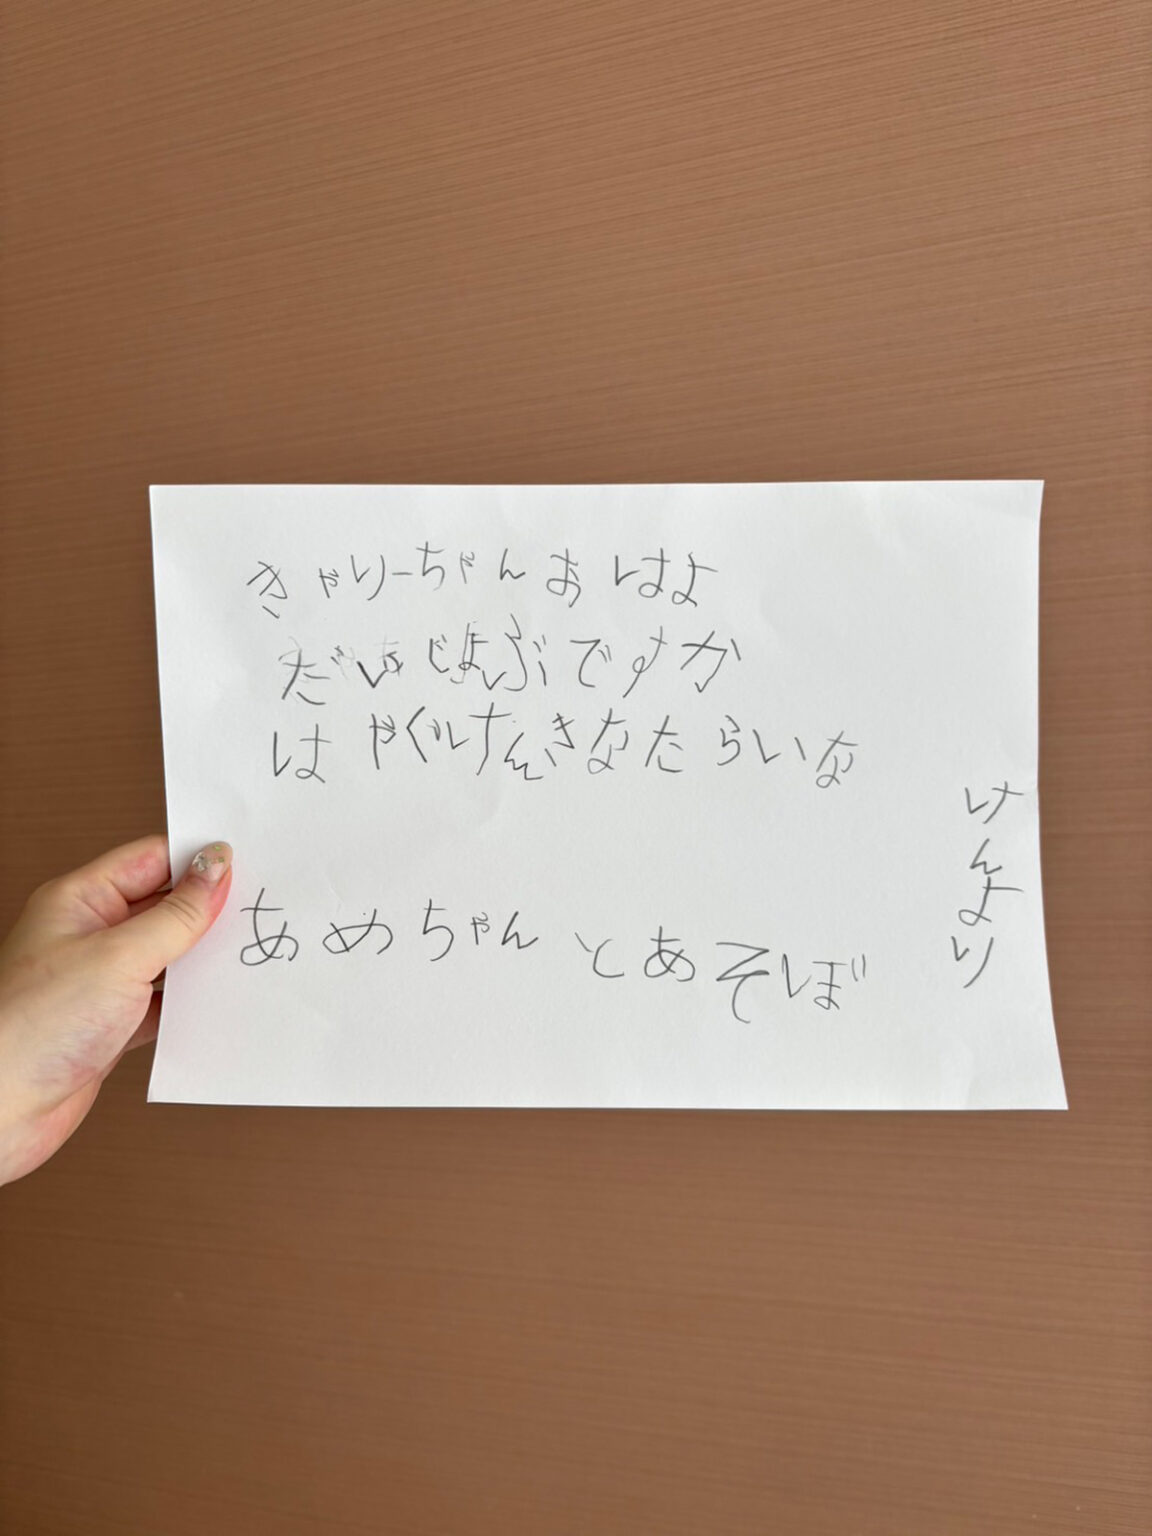 きゃりーちゃんおはよ
だいじょぶですか
はやくげんきなたらいな
あめちゃんとあそぼ
けんより